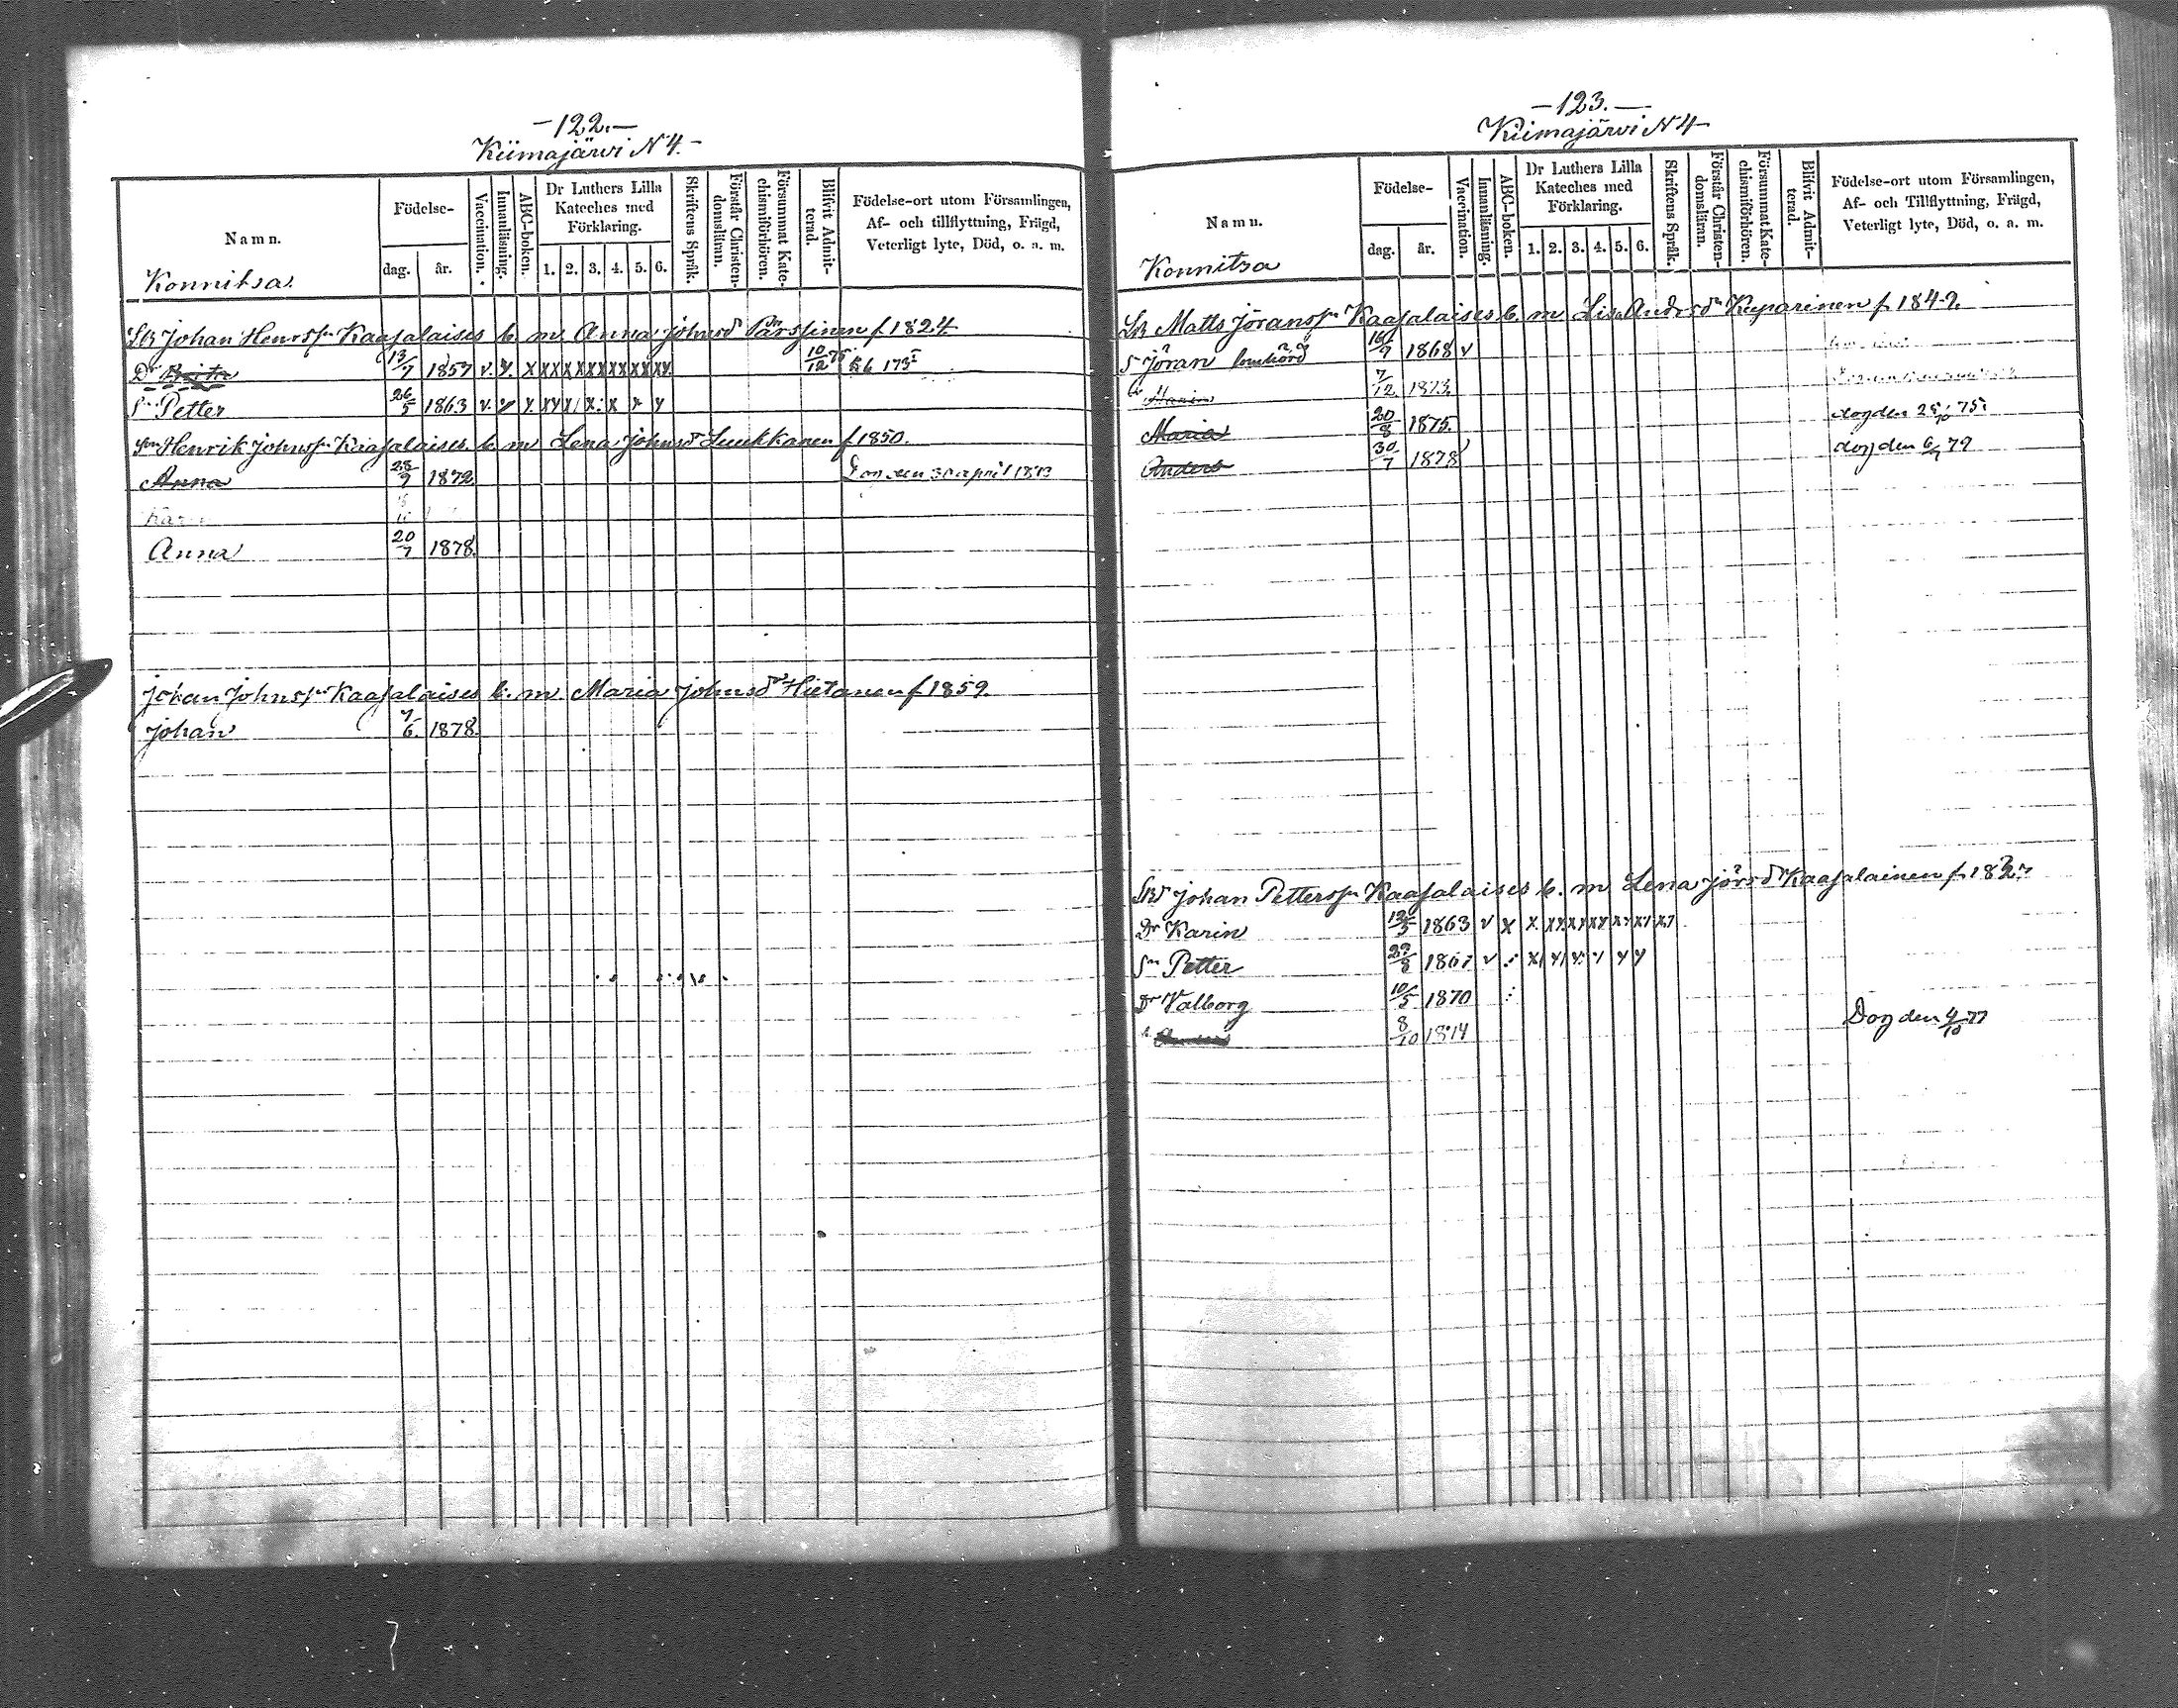 -122.-
Kiimajärvi N 4.-
Namn.
Födelse-
dag.
år.
Vaccination.
Innanläsning.
ABC-boken.
Dr Luthers Lilla
Kateches med
Förklaring.
1. 2. 3. 4. 5. 6.
Skriftens Språk.
Förstår Christen-
domsläran.
Försummat Kate-
chismiförhören.
Blifvit Admit-
terad.
Födelse-ort utom Församlingen,
Af- och tillflyttning, Frägd,
Veterligt lyte, Död, o. a. m.
Konnitsa.
Johan Henrsn Kaasalaises b. m. Anna Johnsdr Pärssinen f 1824
Dr Brita 13/7 1857 v. x x xx x xx xx xx xx 10/12 75
Sn Petter 26/5 1863 v. x
Sn Henrik Johnsn Kaasalaises b. m Lena Johnsdr Luukkanen f 1850.
Anna 28/9 1872 Dog den 30 april 1873
Anna 20/7 1878.
Johan Johnsn Kaasalaises b. m. Maria Johnsdr Hietanen f 1859.
Johan 7/6. 1878.
-123.-
Kiimajärvi N 4-
Namn.
Födelse-
dag.
år.
Vaccination.
Innanläsning.
ABC-boken.
Dr Luthers Lilla
Kateches med
Förklaring.
1. 2. 3. 4. 5. 6.
Skriftens Språk.
Förstår Christen-
domsläran.
Försummat Kate-
chismiförhören.
Blifvit Admit-
terad.
Födelse-ort utom Församlingen,
Af- och Tillflyttning, Frägd,
Veterligt lyte, Död, o. a. m.
Konnitsa
Matts Jöranssn Kaasalaises b. m Lisa Andrsdr Kuparinen f. 1849.
S Jöran lomhörd 1868 v
7/12 1873
Maria 20/8 1875. dog den 75
Anders 30/7 1878 v dog den 6/9 79
Johan Petterssn Kaasalaises b. m Lena Jörsdr Kaasalainen f. 1827
Dr Karin 1863 v x x
Sn Petter v
Dr Valborg 10/5 1870
8/10 1874 Dog den 4/10 77